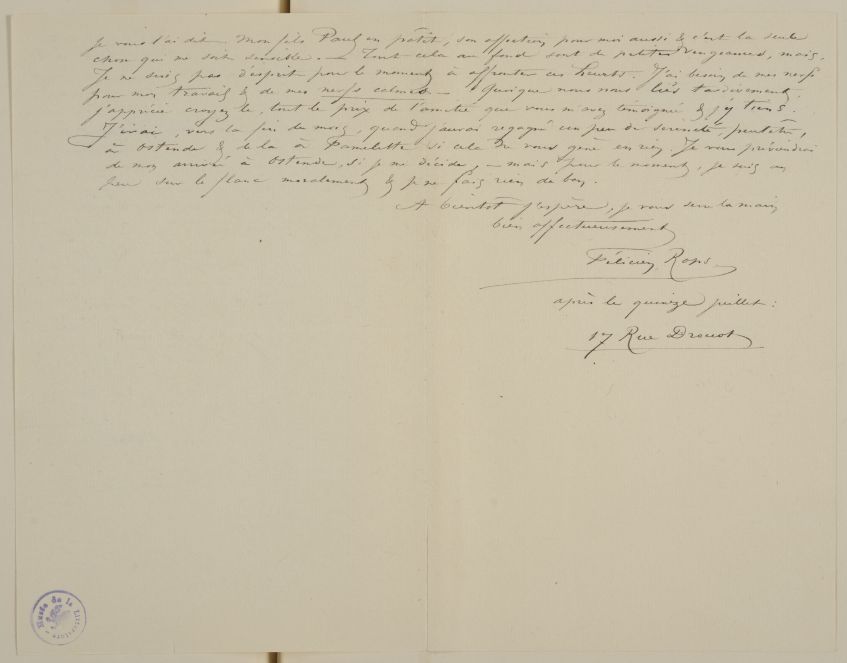 Je vous l'ai dit. Mon fils Paul en pâtit, son affection pour moi aussi & c'est la seule
chose qui me soit sensible. — Tout cela au fond sont de petites vengeances, mais,
Je ne suis pas d'esprit pour le moment à affronter ces heurts. J'ai besoin de mes nerfs
pour mon travail & de mes nerfs calmés. — Quoique nous nous liés tardivement,
j'apprécie croyez le, tout le prix de l'amitié que vous m'avez témoigné & j'y tiens.
J'irai, vers la fin du mois, quand j'aurai regagné un peu de sérénité, peutêtre,
à Ostende & de là à Famelette si cela ne vous gêne en rien. Je vous préviendrai
de mon arrivée à Ostende, si je me décide, — mais pour le moment, je suis un
peu sur le flanc moralement & je ne fais rien de bon.
A bientôt j'espère, je vous serre la main
bien affectueusement
Félicien Rops
après le quinze juillet :
17 Rue Drouot
Musée de la Littérature